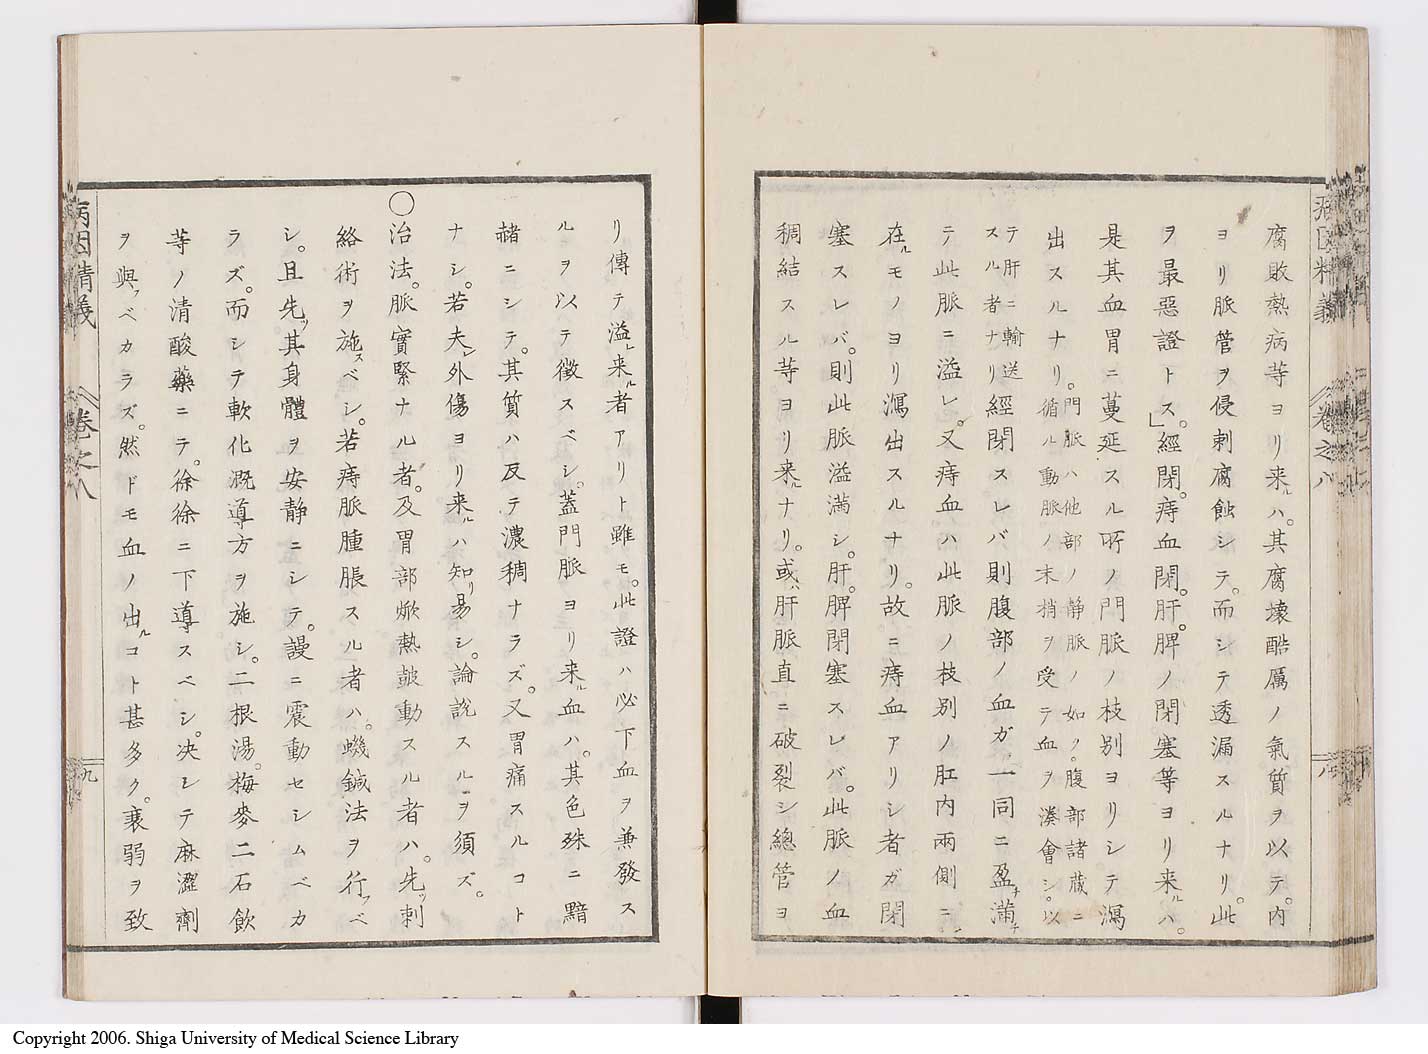 腐敗熱病等ヨリ来ルハ。其腐壊酷厲ノ氣質ヲ以テ。内
ヨリ脈管ヲ侵刺腐蝕シテ。而シテ透漏スルナリ。此
ヲ最惡證トス」。經閉。痔血閉。肝脾ノ閉塞等ヨリ来ルハ。
是其血胃ニ蔓延スル所ノ門脈ノ枝別ヨリシテ瀉
出スルナリ。門脈ハ他部ノ静脈ノ如ク。腹部諸蔵ニ
循ル動脈ノ末梢ヲ受テ血ヲ湊會シ。以
テ肝ニ輸送
スル者ナリ
經閉スレバ則腹部ノ血ガ一同ニ盈チ滿チ
テ此脈ニ溢レ。又痔血ハ此脈ノ枝別ノ肛内兩側ニ
在ルモノヨリ瀉出スルナリ。故ニ痔血アリシ者ガ閉
塞スレバ。則此脈溢満シ。肝。脾閉塞スレバ。此脈ノ血
稠結スル等ヨリ来ルナリ。或ハ肝脈直ニ破裂シ總管ヨ
病因精義 卷之八 八
リ傳テ溢レ来ル者アリト雖モ。此證ハ必下血ヲ兼發ス
ルヲ以テ徴スベシ。蓋門脈ヨリ来ル血ハ。其色殊ニ黯
赭ニシテ。其質ハ反テ濃稠ナラズ。又胃痛スルコト
ナシ。若夫レ外傷ヨリ来ルハ知リ易シ。論説スルヲ須ズ。
〇治法。脈實緊ナル者。及胃部焮熱皷動スル者ハ。先ッ刺
絡術ヲ施スベシ。若痔脈腫脹スル者ハ。蜞鍼法ヲ行フベ
シ。且先ッ其身體ヲ安静ニシテ。謾ニ震動セシムベカ
ラズ。而シテ軟化漑導方ヲ施シ。二根湯。梅麥二石飲
等ノ清酸藥ニテ。徐徐ニ下導スベシ。决シテ麻澀劑
ヲ與フベカラズ。然ドモ血ノ出ルコト甚多ク。衰弱ヲ致
病因精義 卷之八 九
Copyright 2006. Shiga University of Medical Science Library